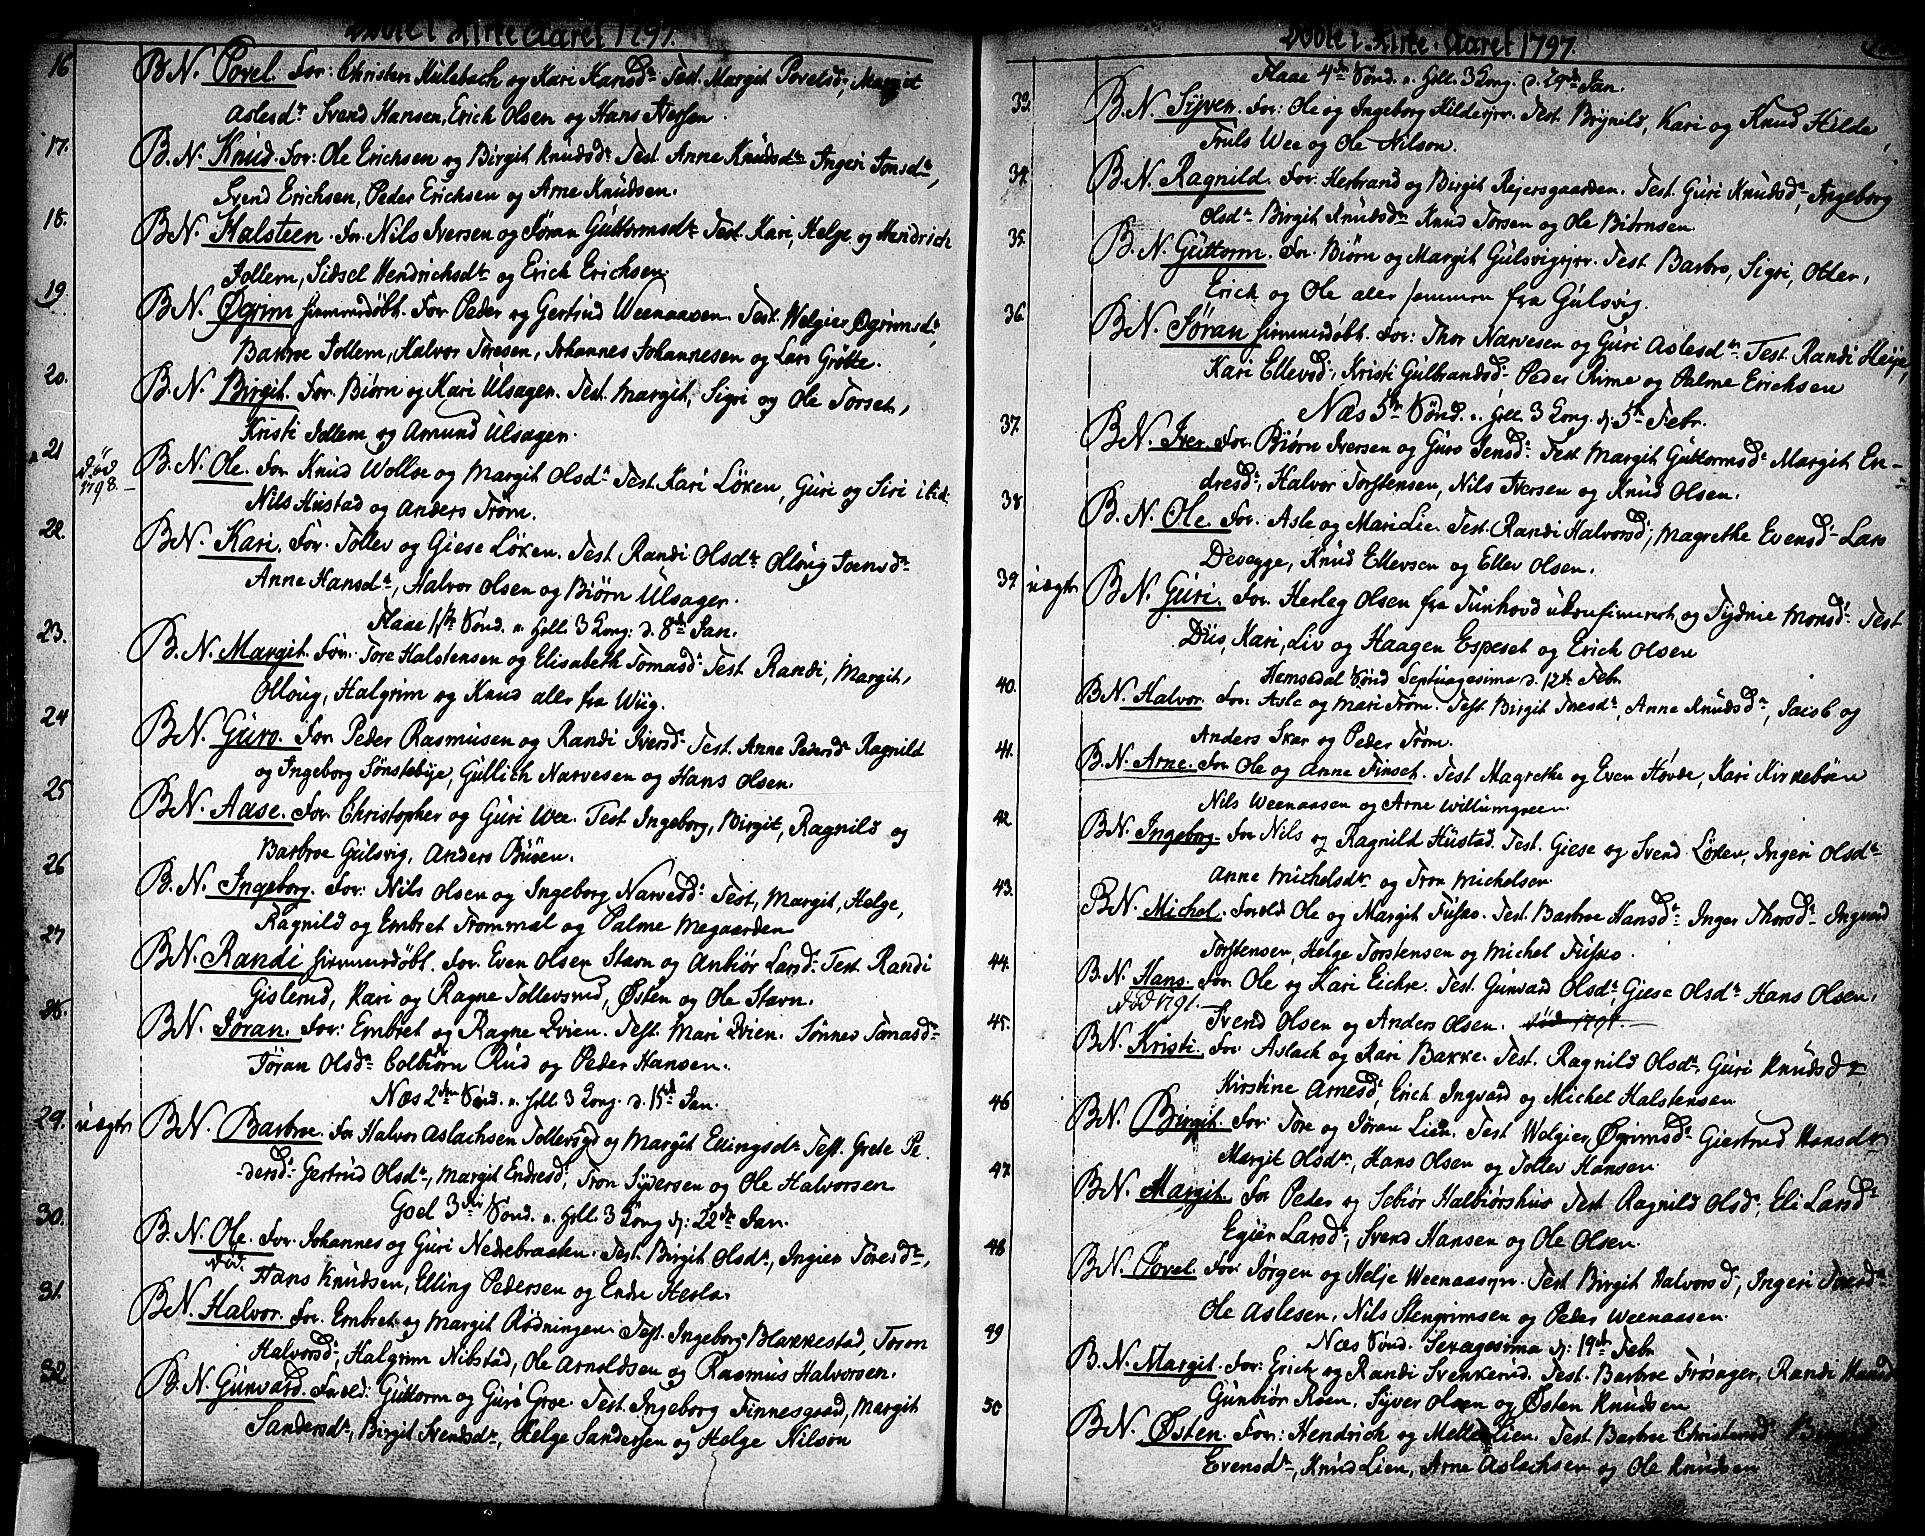 Døbte i Kirke Aaret 1797.
16 B.N. Povel. For: Christen Hulebach og Kari Hansdr. Test. Margit Povelsd:, Margit
Aslesdr. Svend Hansen, Erich Olsen og Hans Iversen.
17. B.N. Knud. For: Ole Erichsen og Birgit Knudsdr. Test. Anne Knudsdr. Ingeri Jonsdr,
Svend Erichsen, Peder Erichsen og Arne Knudsen.
18. B.N. Halsteen. for. Nils Iversen og Jøran Guttormsdr. Test. Kari, Helge og Hendrich
Jollem, Sidsel Hendrichsdr. og Erich Erichsen.
19. B.N. Øgrim hiemmedøbt. For. Peder og Gertrud Weenaasen. Test. Welgier Øgrimsdr,
Barbroe Jollem, Halvor Toresen, Johannes Johannesen og Lars Grøtte.
20. B.N. Birgit. For. Biørn og Kari Ulsager. Test. Margit, Sigri og Ole Torset,
Kristi Jollem og Amund Ulsager.
21 død 1798. B.N. Ole. For. Knud Wollse og Margit Olsdr. Test. Kari Løken, Guri og Siri ibid:
Nils Hustad og Anders Trøm.
22. B.N. Kari. For. Tollev og Giese Løken. Test. Randi Olsdr. Olloug Joensdr.
Anne Hansdr., Halvor Olsen og Biørn Ulsager.
Flaae 1ste Sønd. e. Hell. 3 Kong: d. 8de Jan.
23. B.N. Margit. For. Tore Halstensen og Elisabeth Tomasd: Test. Randi, Margit,
Olloug, Halgrim og Knud alle fra Wiig.
24 B.N. Guro. For. Peder Rasmusen og Randi Iversd: Test. Anne Pedersd: Ragnild
og Ingeborg Sønstebye, Gullich Narvesen og Hans Olsen.
25 B.N. Aase. For. Christopher og Guri Wee. Test. Ingeborg, Birgit, Ragnild og
Barbroe Gulsvig, Anders Buien.
26 B.N. Ingeborg. For: Nils Olsen og Ingeborg Narvesd: Test. Margit, Helge,
Ragnild og Embret Trommal og Palme Megaarden
27 B.N. Randi hiemmedøbt. For. Even Olsen Stavn og Anbiør Larsd: Test. Randi
Gislerud, Kari og Ragne Tollevsrud, Østen og Ole Stavn.
28. B.N. Jøran. For: Embret og Ragne Qvien. Test. Mari Qvien. Sønnev Tomasdr.
Jøran Olsdr. Colbiørn Rud og Peder Hansen.
Næs 2den Sønd. e. Hell. 3 Kong. d. 15de Jan.
29. uægte B.N. Barbroe. For. Halvor Aslachsen Tollevsgd og Margit Ellingsdr. Test. Grete Pe-
dersd: Gertrud Olsdr., Margit Endresd:, Tron Syversen og Ole Halvorsen
Goel 3die Sønd. e. Hell. 3 Kong. d: 22de Jan.
30. B.N. Ole. For. Johannes og Guri Nedrebraaten. Test. Birgit Olsdr., Ingier Toresdr.,
død. Hans Knudsen, Elling Pedersen og Endre Hesla.
31. B.N. Halvor. For. Embret og Margit Rødningen. Test. Ingeborg Blakkestad, Toron
Halvorsd:, Halgrim Nibstad, Ole Arnoldsen og Rasmus Halvorsen.
32 B.N. Gunvard. Foreld: Guttorm og Guro Groe. Test. Ingeborg Finnesgaard, Margit
Sandersdr., Birgit Svendsdr., Helge Sandersen og Helge Nilson
Døbte i Kirke. Aaret 1797.
Flaae 4de Sønd. e. Hell. 3 Kong. d. 29de Jan.
33. B.N. Syver. For: Ole og Ingeborg Hildesjrr. Test. Brynild, Kari og Knud Hilde,
Truls Wee og Ole Nilson.
34. B.N. Ragnild. For. Herbrand og Birgit Rejersgaarden. Test. Guri Knudsdr., Ingeborg
Olsdr. Birgit Knudsdr. Knud Torsen og Ole Biørnsen
35. B.N. Guttorm. For. Biørn og Margit Gulsvigejer. Test. Barbro, Sigri, Older,
Erich og Ole alle sammen fra Gulsvig.
36. B.N. Jøran hiemmedøbt. For: Thor Narvesen og Guri Aslesdr. Test. Randi Heije,
Kari Ellevsd:, Kristi Gulbrandsd: Peder Rime og Palme Erichsen
Næs 5te Sønd. e. Hell. 3 Kong. d: 5te Febr.
37. B.N. Iver. For. Biørn Iversen og Guro Jensd: Test. Margit Guttormsd: Margit En-
dresd:, Halvor Torstensen, Nils Iversen og Knud Olsen.
38. B.N. Ole. For. Asle og Mari Lie. Test. Randi Halvorsd:, Magrethe Evensd: Lars
Devegge, Knud Ellevsen og Ellev Olsen.
39. uægte B.N. Guri. For. Herleg Olsen fra Tunhovd ukonfirmeret og Sydnie Monsd: Test
Diis, Kari, Liv og Haagen Espeset og Erich Olsen
Hemsedal Sønd Septuagesima d. 12te Febr.
40. B.N. Halvor. For: Asle og Mari Trøm. Test. Birgit Toresdr., Anne Knudsdr., Jacob og
Anders Skar og Peder Trøm.
41. B.N. Arne. For. Ole og Anne Finset. Test Magrethe og Even Hovde, Kari Kirkebøen
Nils Weenaasen og Arne Willumgreen
42 B.N. Ingeborg. For Nils og Ragnild Hustad. Test. Giese og Svend Løken, Ingeri Olsdr.
Anne Michelsdr. og Tron Michelsen
43. B.N. Michel. Foreld. Ole og Margit Fusko. Test. Barbroe Hansdr. Inger Thorsdr. Ingvard
Torstensen, Helge Torstensen og Michel Fusko.
44. B.N. Hans. For. Ole og Kari Eichre. Test. Gunvard Olsdr., Giese Olsdr. Hans Olsen,
død 1791. Svend Olsen og Anders Olsen.
45. B.N. Kristi. For. Aslach og Kari Bakke. Test. Ragnild Olsdr. Guri Knudsdr.
Kirstine Arnesd:, Erich Ingvard og Michel Halstensen
46 B.N. Birgit. For. Tore og Jøran Lien. Test Welgier Øgrimsd: Giertrud Hansdr.
Margit Olsdr., Hans Olsen og Tollev Hansen.
47. B.N. Margit. For Peder og Sebiør Halbiørshus Test Ragnild Olsd:, Eli Larsd:
Egier Larsd:, Svend Hansen og Ole Olsen.
48 B.N. Povel For Jørgen og Helje Weenaasejer. Test Birgit Halvorsd:, Ingeri Toresdr.
Ole Aslesen, Nils Stengrimsen og Peder Weenaasen.
Næs Sønd. Sexagesima d: 19de Febr
49 B.N. Margit. For: Erich og Randi Svenkerud. Test. Barbroe Frøsager, Randi
Gunbiør Roen, Syver Olsen og Østen Knudsen
50 B.N. Østen. For: Hendrich og Mette Lien. Test. Barbroe Christensd:
Evensdr., Knud Lien, Arne Aslachsen og Ole Knudsen